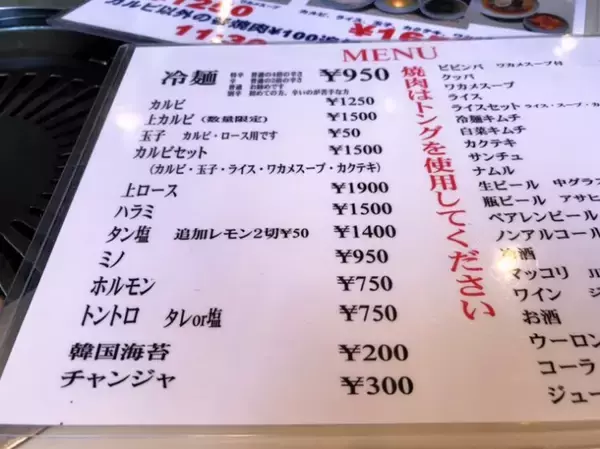 カルビ以外の
11:30
MENU
冷麺 ¥950
特辛 普通の4倍の辛さ
辛 普通の2倍の辛さ
普通 お勧めです
別辛 初めての方、辛いのが苦手な方
カルビ ¥1250
上カルビ (数量限定) ¥1500
玉子 カルビ・ロース用です ¥50
カルビセット ¥1500
(カルビ・玉子・ライス・ワカメスープ・カクテキ)
上ロース ¥1900
ハラミ ¥1500
タン塩 追加レモン2切¥50 ¥1400
ミノ ¥950
ホルモン ¥750
トントロ タレor塩 ¥750
韓国海苔 ¥200
チャンジャ ¥300
焼肉はトングを使用してください
ビビンバ ワカメスープ付
クッパ
ワカメスープ
ライス
ライスセット ライス・スープ・カ
冷麺キムチ
白菜キムチ
カクテキ
サンチュ
ナムル
生ビール 中グラ
瓶ビール アサヒ
ペアレンビール
ノンアルコール
冷酒
マッコリ
ワイン
お酒
ウーロン
コーラ
ジュー